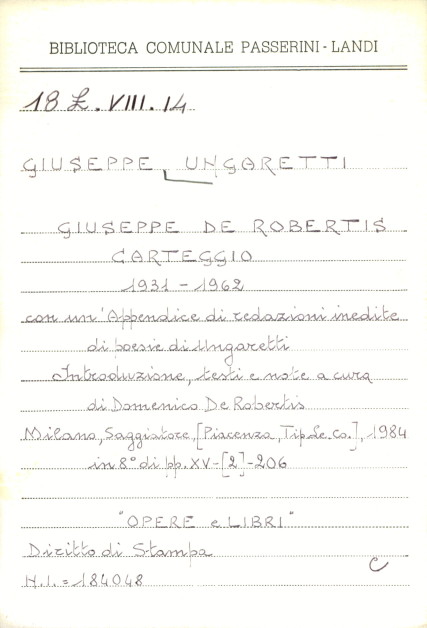 BIBLIOTECA COMUNALE PASSERINI-LANDI
18 L. VIII. 14
GIUSEPPE UNGARETTI
GIUSEPPE DE ROBERTIS
CARTEGGIO
1931 - 1962
con un'Appendice di redazioni inedite
di poesie di Ungaretti
Introduzione, testi e note a cura
di Domenico De Robertis
Milano, Saggiatore, [Piacenza, Tip.Le.Co.], 1984
in 8° di pp. XV-[2]-206
"OPERE e LIBRI"
Diritto di Stampa
C
N.I. = 184048